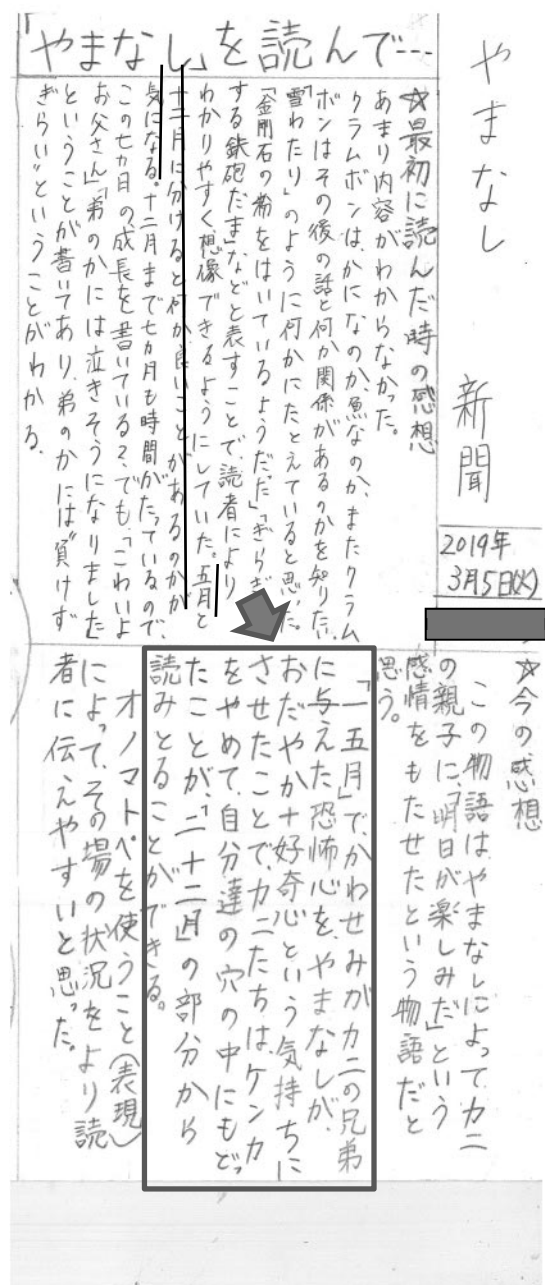 やまなし 新聞
2019年
3月5日(火)
「やまなし」を読んで…
☆最初に読んだ時の感想
あまり内容がわからなかった。
クラムボンは、かになのか、魚なのか、またクラム
ボンはその後の話と何か関係があるのかを知りたい。
「雪わたり」のように何かにたとえていると思った。
「金剛石の粉をはいているようだった」「ぎらぎら
する鉄砲だま」などと表すことで、読者により
わかりやすく、想像できるようにしていた。五月と
十二月に分けると何か良いことがあるのかが
気になる。十二月まで七カ月も時間がたっているので、
この七カ月の成長を書いている?、でも、「こわいよ
お父さん」「弟のかには泣きそうになりました」
ということが書いてあり、弟のかには"負けず
ぎらい"ということがわかる。
☆今の感想
この物語はやまなしによってカニ
の親子に、「明日が楽しみだ」という
感情をもたせたという物語だと
思う。
「一五月」で、かわせみがカニの兄弟
に与えた恐怖心を、やまなしが、
おだやか+好奇心という気持ちに
させたことで、カニたちは、ケンカ
をやめて、自分達の穴の中にもどっ
たことが、「二十二月」の部分から
読みとることができる。
オノマトペを使うこと(表現)
によって、その場の状況をより読
者に伝えやすいと思った。